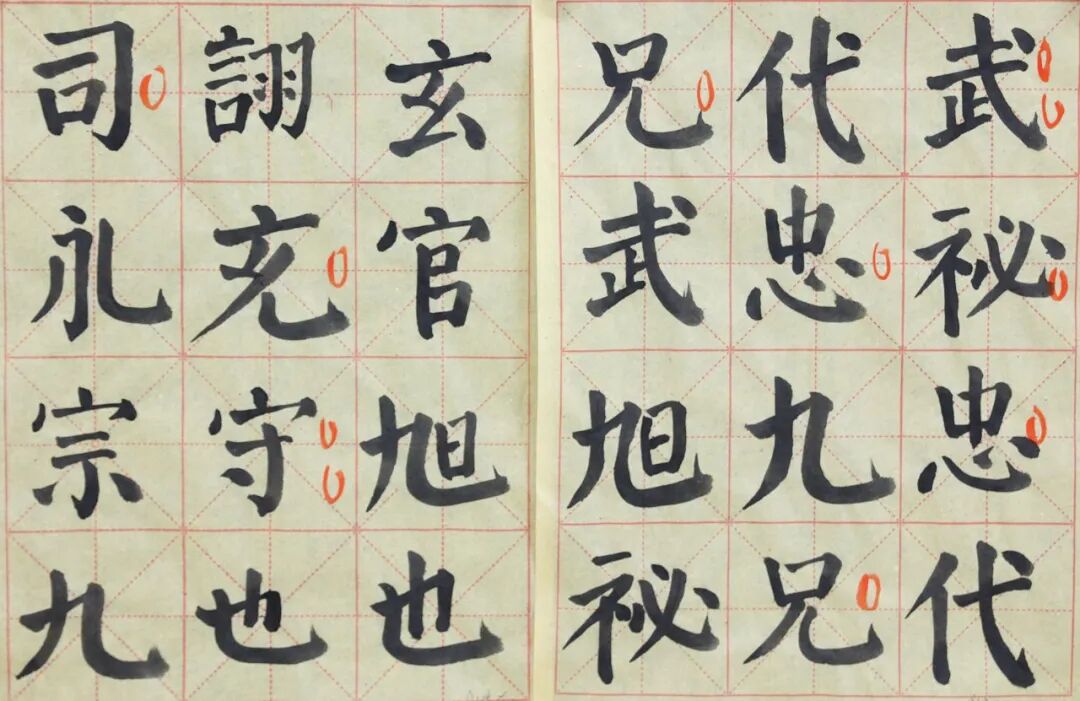 武祕忠代
代忠九兄
兄武旭祕
玄官旭也
詡充守也
司礼宗九